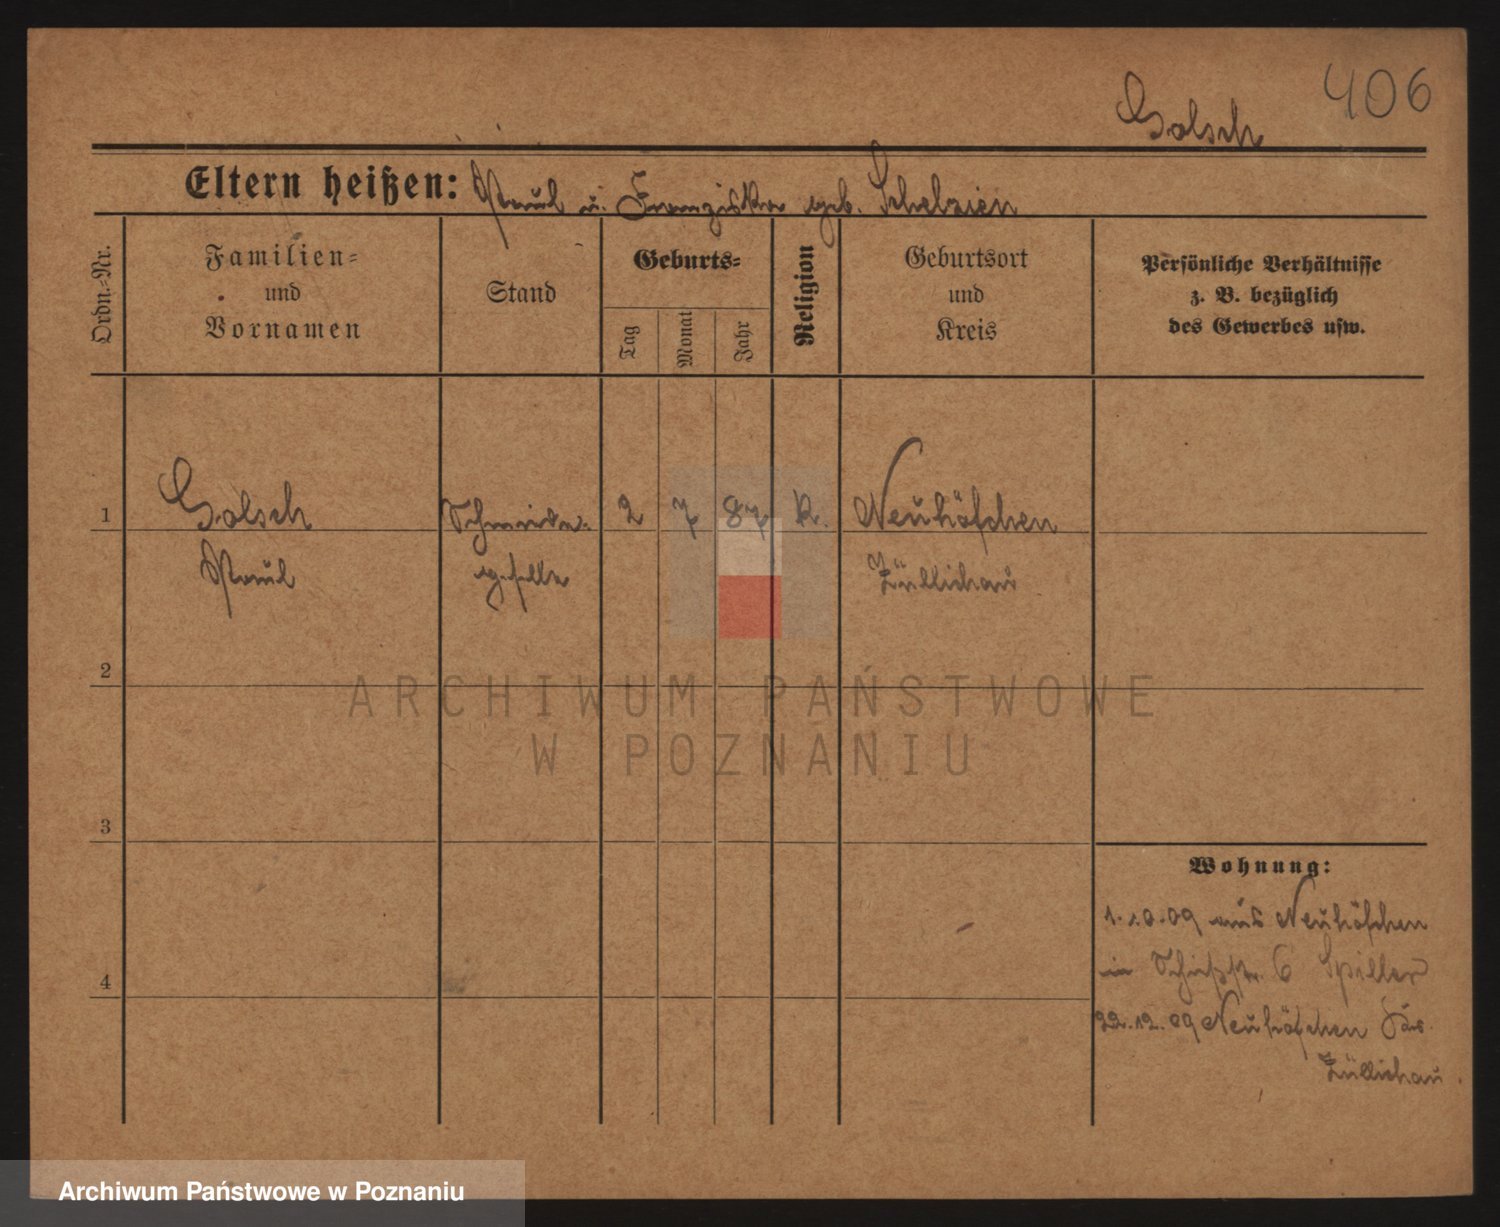 406
Golsch
Eltern heißen: Paul u. Franziska geb. Schelzien
Ordn.-Nr.
Familien-
und
Vornamen
Stand
Geburts-
Tag
Monat
Jahr
Religion
Geburtsort
und
Kreis
Persönliche Verhältnisse
z. B. bezüglich
des Gewerbes usw.
1
Golsch
Paul
Schneider-
geselle
2 7 87 K.
Neuhöfchen
Züllichau
2
3
4
Wohnung:
1.10.09 aus Neuhöfchen
in 6 Spiller
22.12.09 Neuhöfchen Krs.
Züllichau.
ARCHIWUM PAŃSTWOWE
W POZNANIU
Archiwum Państwowe w Poznaniu